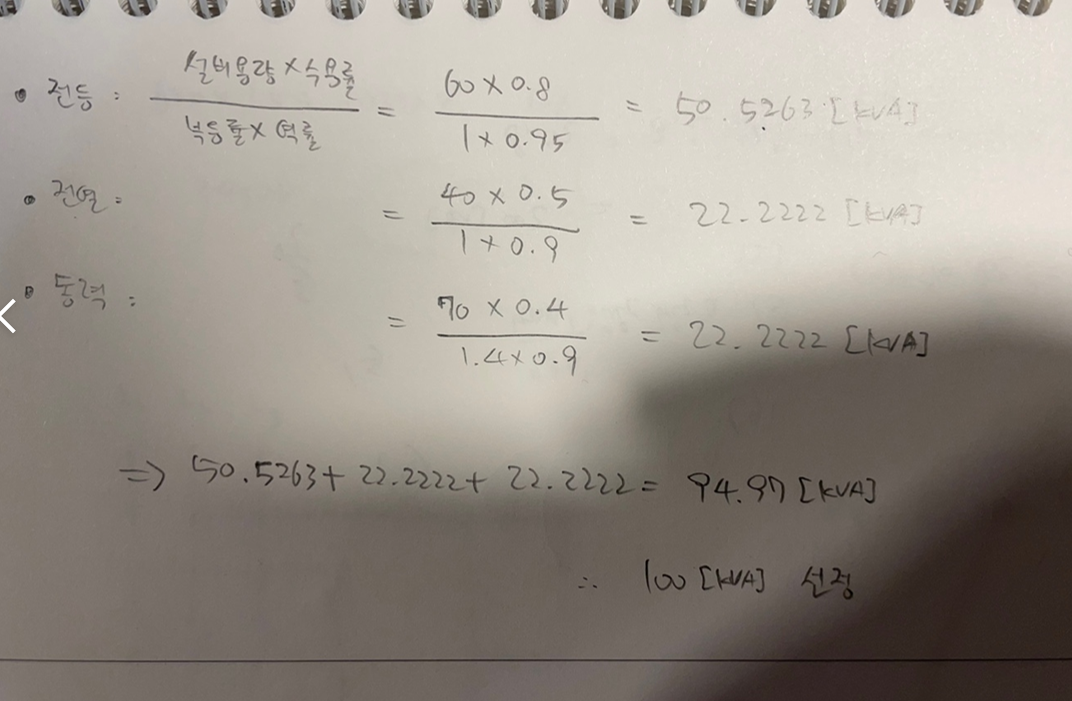 • 전등 : 설비용량×수용률 / 부등률×역률 = 60×0.8 / 1×0.95 = 50.5263 [kVA]
• 전열 : = 40×0.5 / 1×0.9 = 22.2222 [kVA]
• 동력 : = 70×0.4 / 1.4×0.9 = 22.2222 [kVA]
⇒ 50.5263+22.2222+22.2222= 94.97 [kVA]
∴ 100 [kVA] 선정